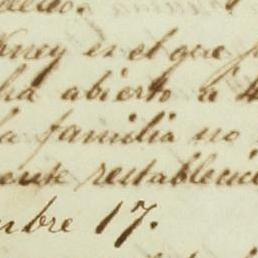 oney es el que p
ha abierto a 4
a familia no
ente restableci
mbre 17.